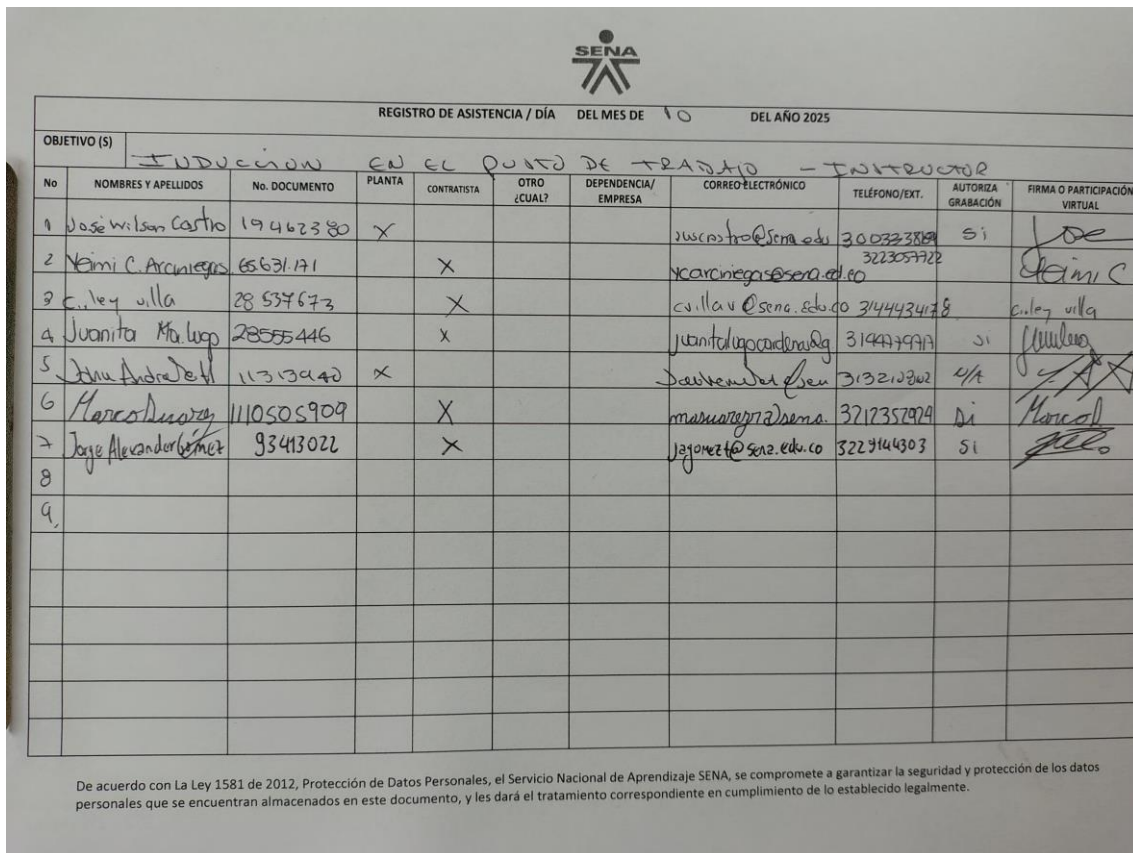 SENA
REGISTRO DE ASISTENCIA / DÍA DEL MES DE 10 DEL AÑO 2025
OBJETIVO (S)
INDUCCION EN EL PUNTO DE TRABAJO - INSTRUCTOR
No NOMBRES Y APELLIDOS No. DOCUMENTO PLANTA CONTRATISTA OTRO ¿CUAL? DEPENDENCIA/ EMPRESA CORREO ELECTRÓNICO TELÉFONO/EXT. AUTORIZA GRABACIÓN FIRMA O PARTICIPACIÓN VIRTUAL
1 José Wilson Castro 19462380 X Si
2 Yeimi C. Arciniegas 65631.171 X ycarciniegas@sena.ed.co Yeimi C
3 C..ley villa 28537673 X cvillav@sena.edu.co 3144434178 C..ley villa
4 Juanita Ma. Lugo 28555446 X si
5 X N/A
6 Marco Suarez 1110505909 X 3212352924 Si
7 Jorge Alexander Gómez 93413022 X jagomezt@sena.edu.co 3229144303 Si
8
9
De acuerdo con La Ley 1581 de 2012, Protección de Datos Personales, el Servicio Nacional de Aprendizaje SENA, se compromete a garantizar la seguridad y protección de los datos
personales que se encuentran almacenados en este documento, y les dará el tratamiento correspondiente en cumplimiento de lo establecido legalmente.